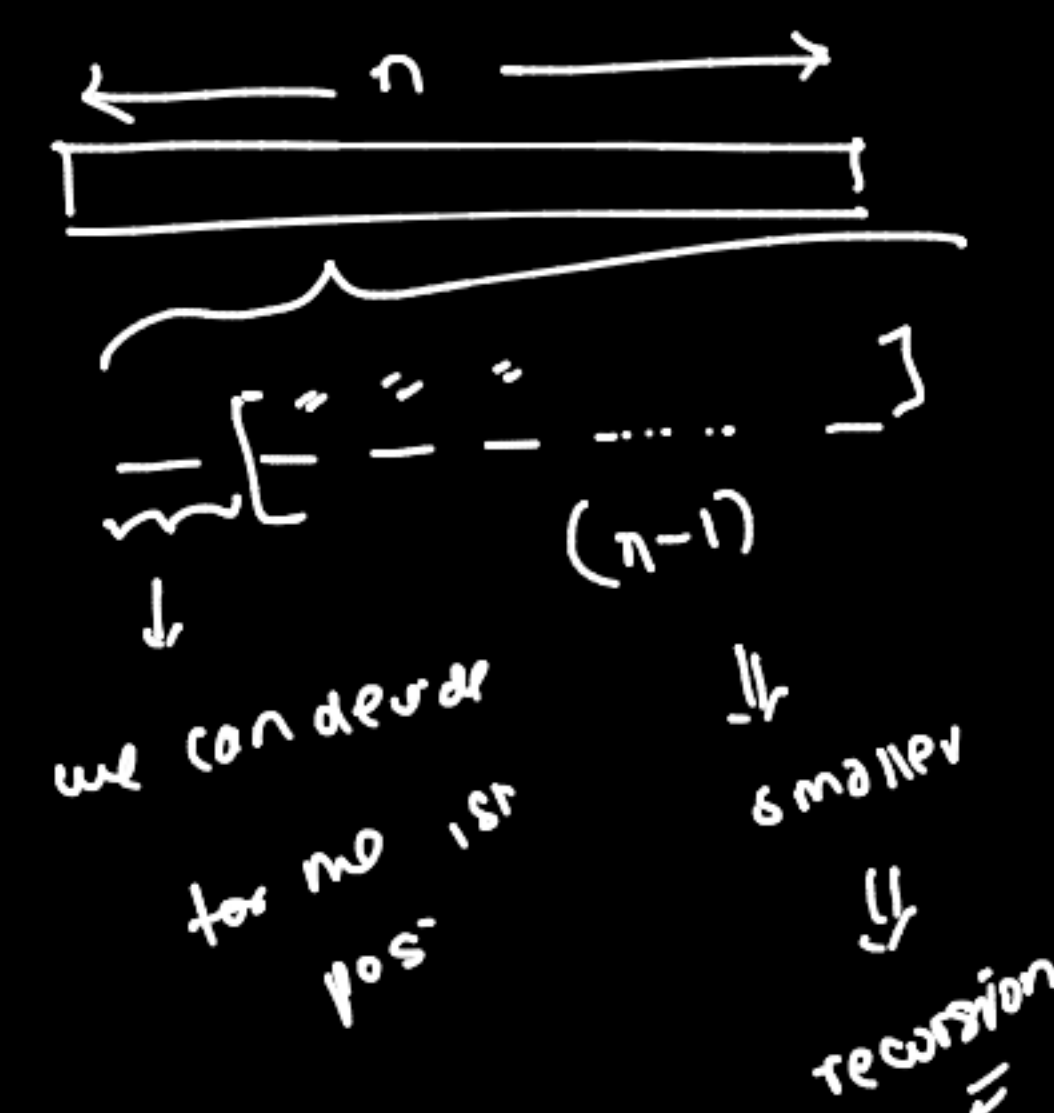 n
(n-1)
we can decide
for the 1st
pos
smaller
recursion